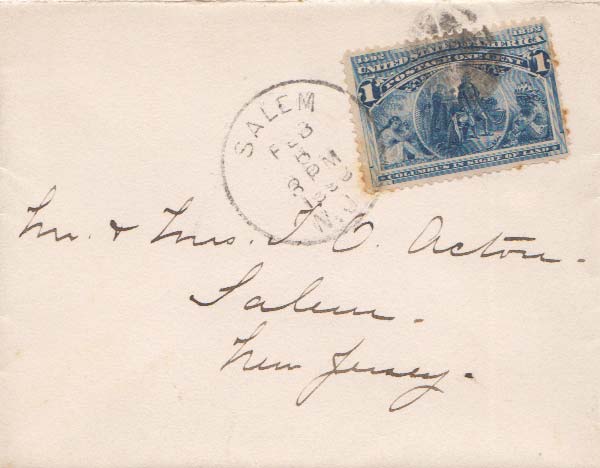 1492 1892
UNITED STATES OF AMERICA
POSTAGE ONE CENT
1 1
COLUMBUS IN SIGHT OF LAND
SALEM
3 PM
N.J.
Mr. & Mrs. T. O. Acton.
Salem.
New Jersey.